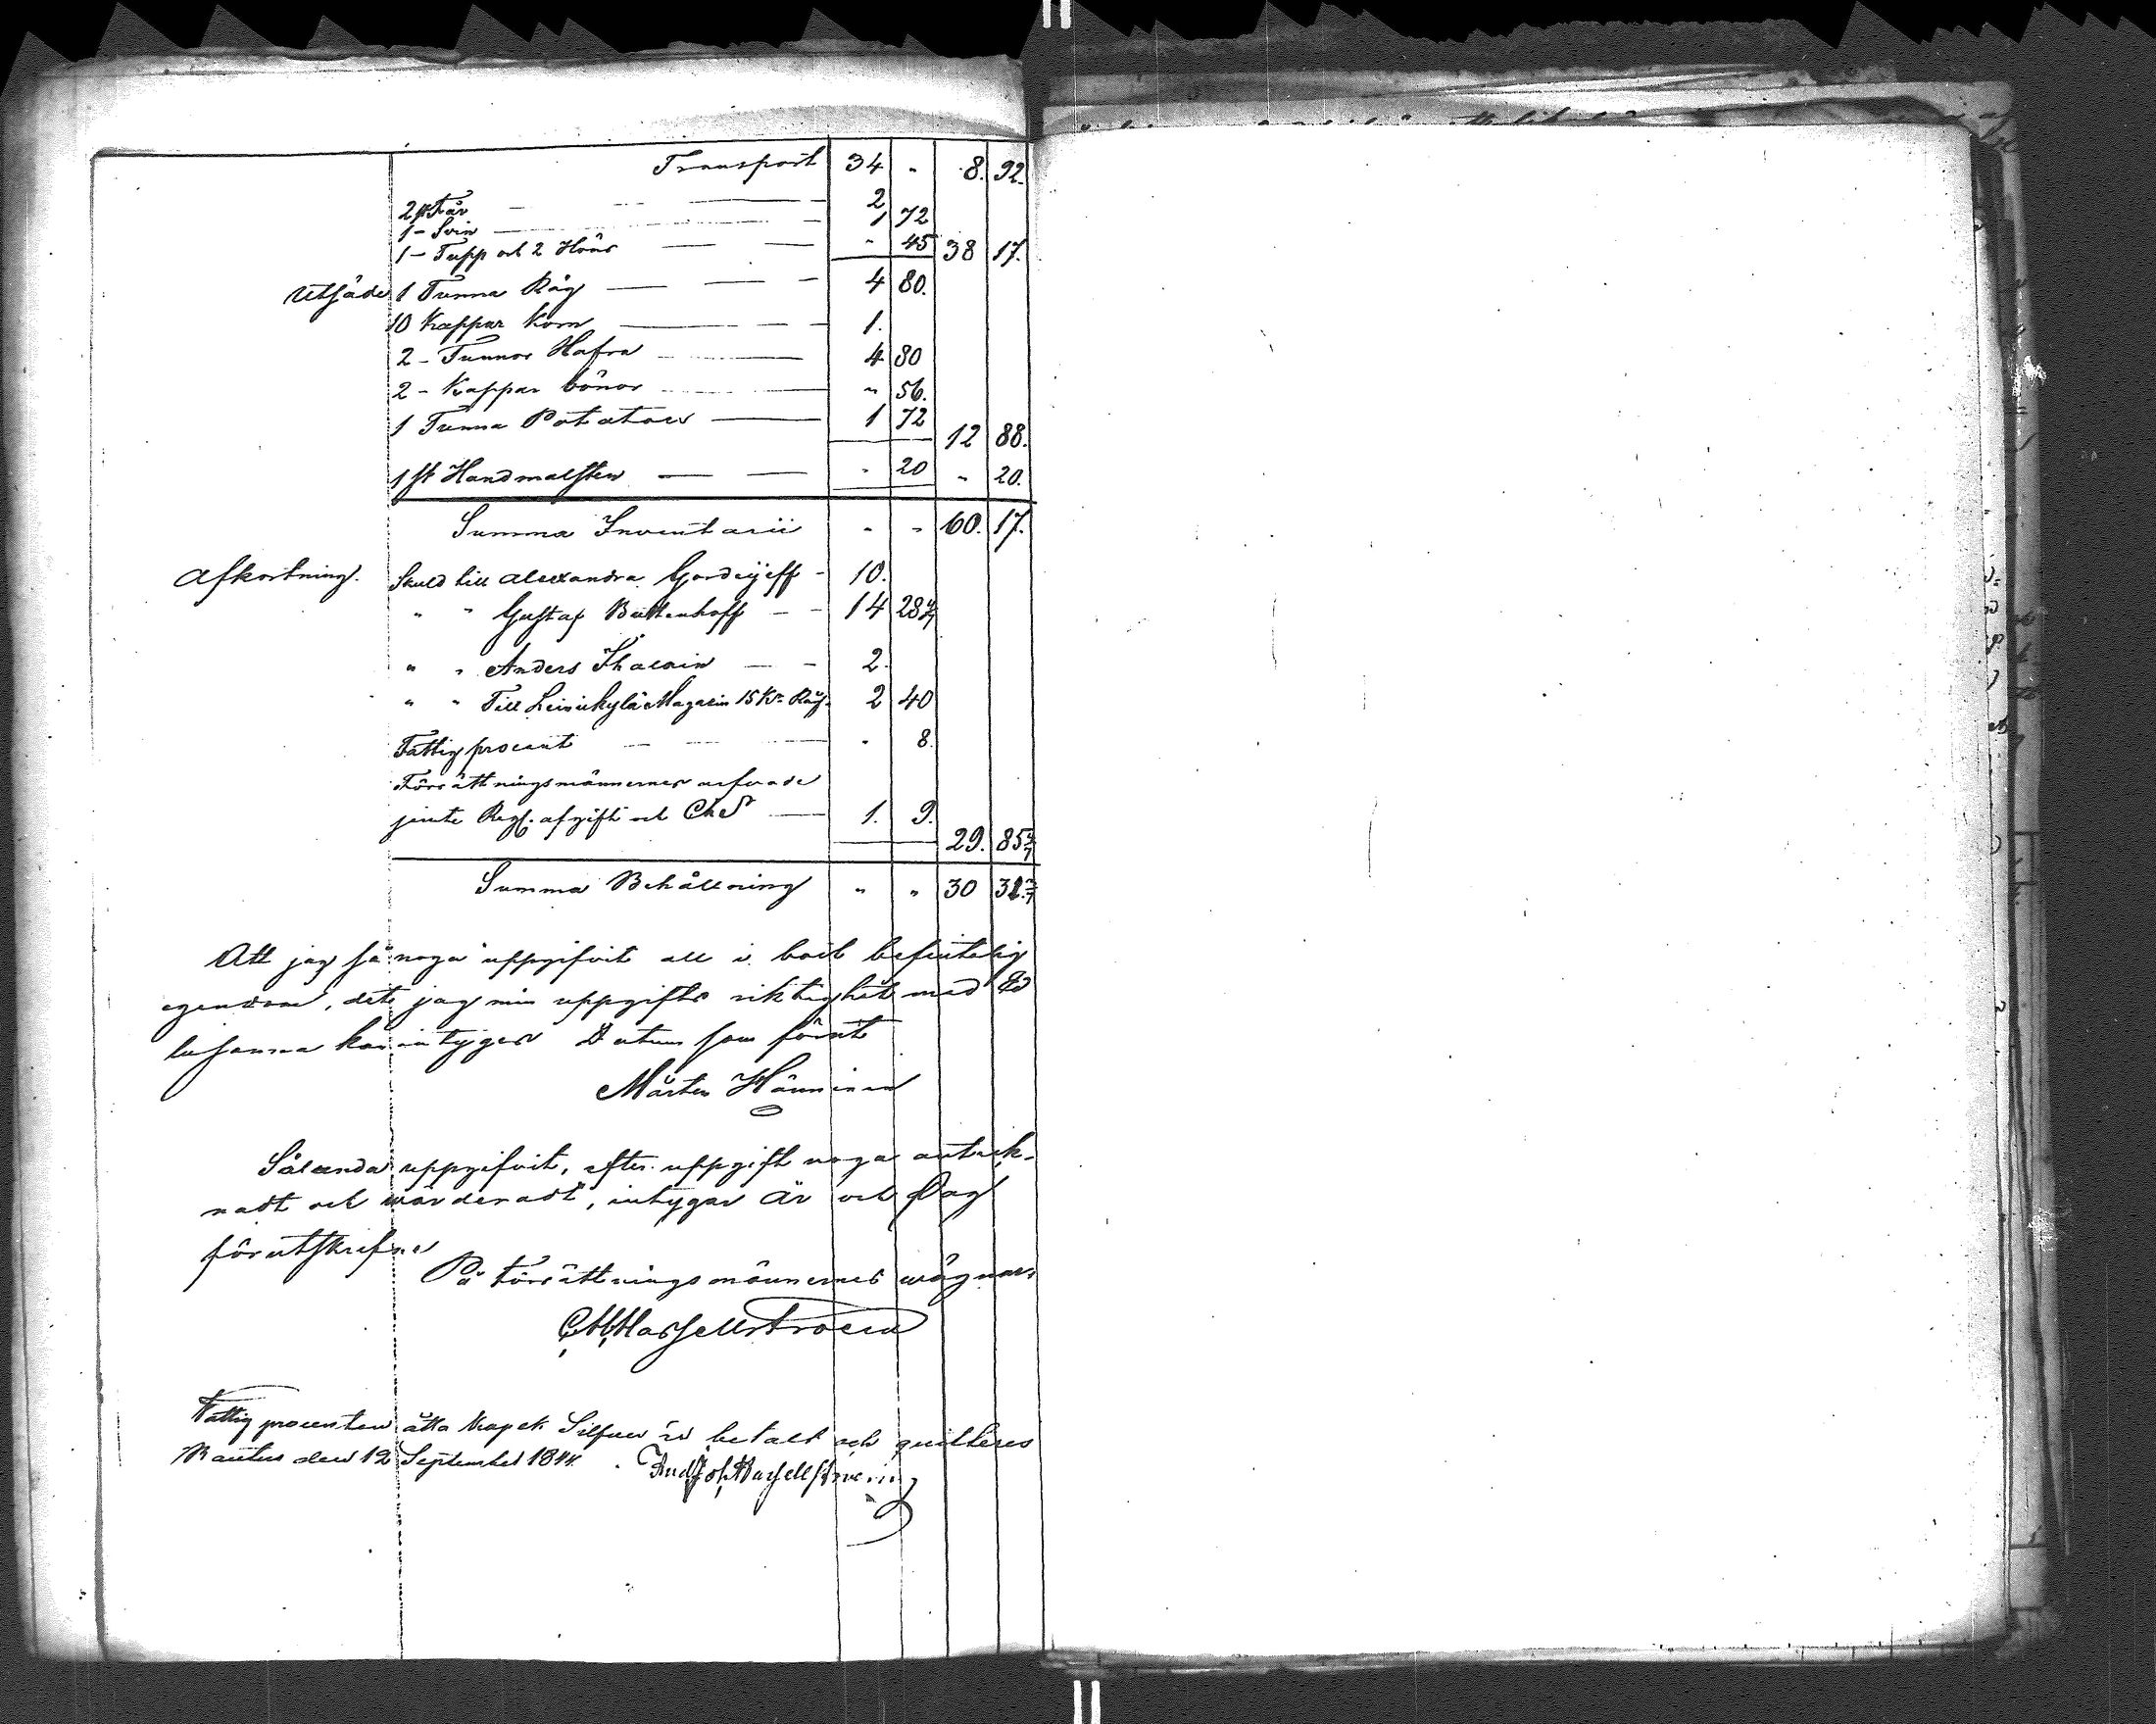 Transport 34 " 8. 92.
2 st Får 2
1 - Svin 1 72
1 - Tupp och 2 Höns " 45 38 17.
Utsäde 1 Tunna Råg 4 80.
10 Kappar Korn 1.
2 - Tunnor Hafra 4 80
2 - Kappar bönor " 56.
1 Tunna Potatoes 1 72 12 88.
1 st Handmalsten " 20 " 20.
Summa Inventarii " " 60. 17.
Afkortning. Skuld till Alexandra Gordejeff 10.
" " Gustaf Büttenhoff 14 28 4/7
" " Anders 2.
" " Till Leinikylä Magasin 15 Kr Råg. 2 40
Fattig procent " 8.
Förrättningsmännernes arfvode
jemte afgift och 1. 9. 29. 85 4/7
Summa Behållning " " 30 31 3/7
Att jag så noga uppgifvit all i boet befintelig
egendom, det jag min uppgifts riktighet med Ed
kan intygar Datum som förut
Mårten Hänninen
Sålunda uppgifvit, efter uppgift noga anteck-
nadt och wärderadt, intygar År och Dag
förutskrefne
På Förrättningsmännernes wägnar,
Hassellstroem
Fattig procenten åtta Kopek Silfver är betalt och quitteres
Rautus den 12 September 1844. Hassellstroem